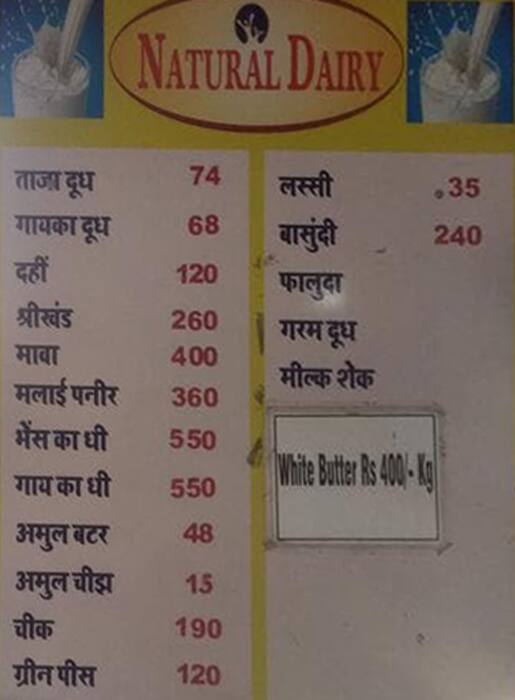 NATURAL DAIRY
ताजा दूध 74
गायका दूध 68
दहीं 120
श्रीखंड 260
मावा 400
मलाई पनीर 360
भेंस का धी 550
गाय का धी 550
अमुल बटर 48
अमुल चीझ 15
चीक 190
ग्रीन पीस 120
लस्सी 35
बासुंदी 240
फालुदा
गरम दूध
मील्क शेक
White Butter Rs 400/- Kg